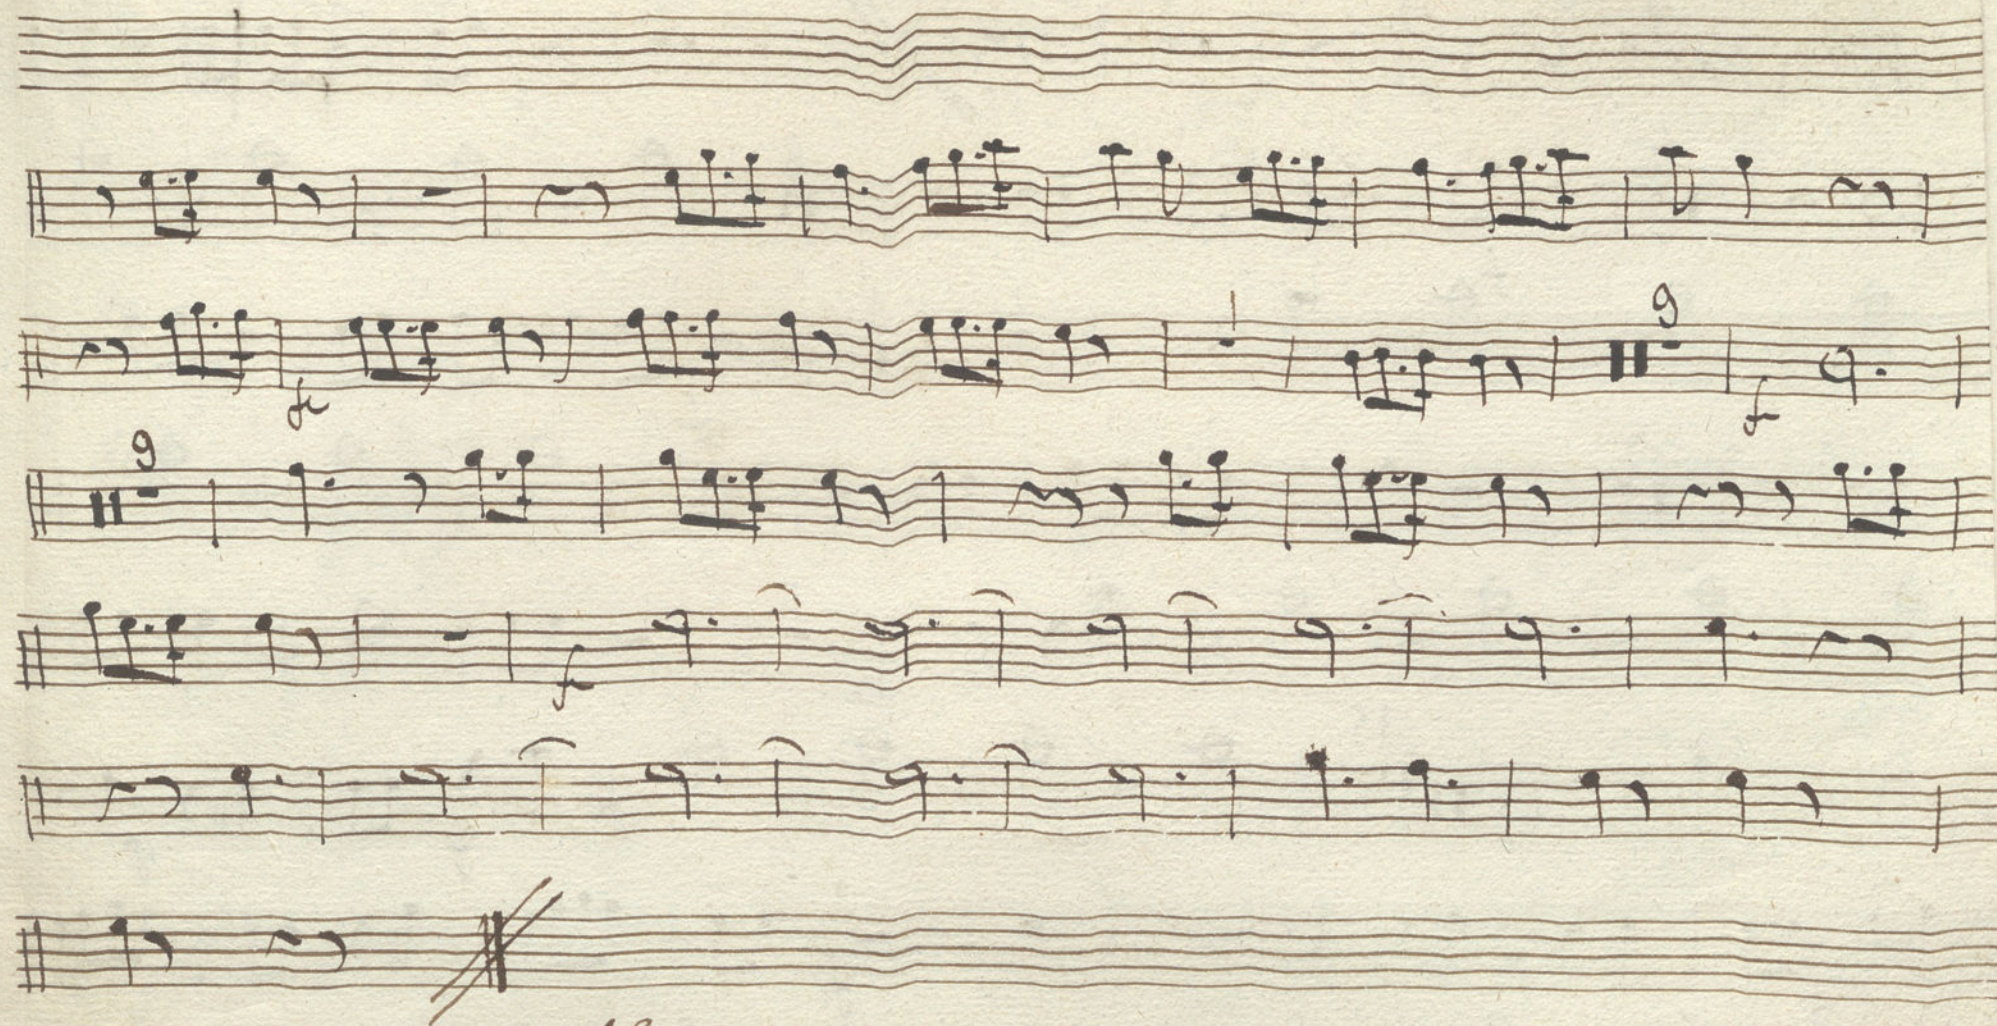 9
f
f
9
f